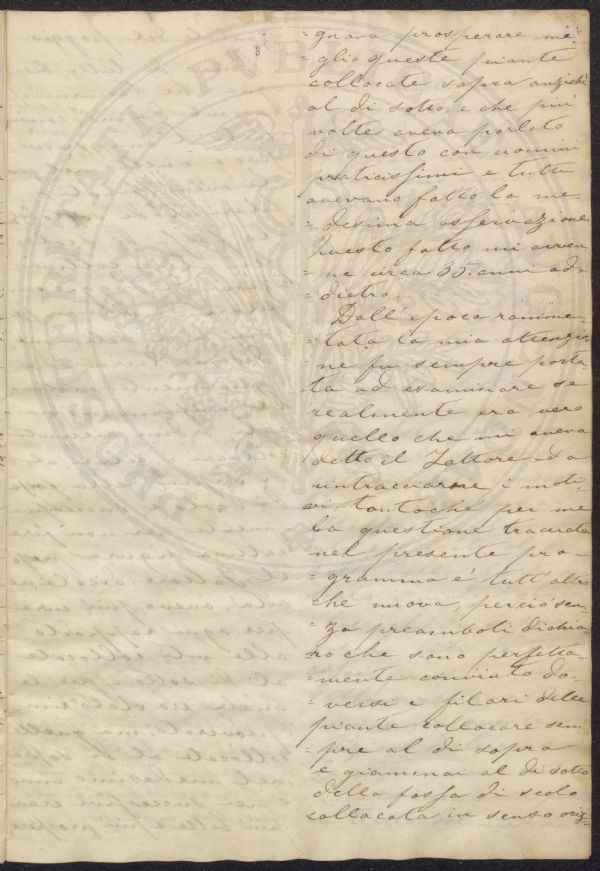 3
=gnava prosperare me
=glio queste piante
collocate sopra anziché
al di sotto, e che più
volte aveva parlato
di questo con uomini
praticissimi e tutti
avevano fatto la me=
=desima osservazione
Questo fatto mi avven
=ne circa 35. anni ad=
=dietro.
Dall'epoca rammen=
=tata la mia attenzio
ne fu sempre porta=
=ta ad esaminare se
realmente era vero
quello che mi aveva
detto il Fattore ed a
rintracciarne i moti=
vi, tantoché per me
la questione tracciata
nel presente pro=
=gramma é tutt'altro
che nuova, perció sen=
=za preamboli dichia
ro che sono perfetta=
=mente convinto do=
=versi i filari delle
piante collocare sem
=pre al di sopra
e giammai al di sotto
della fossa di scolo
collocata in senso oriz=